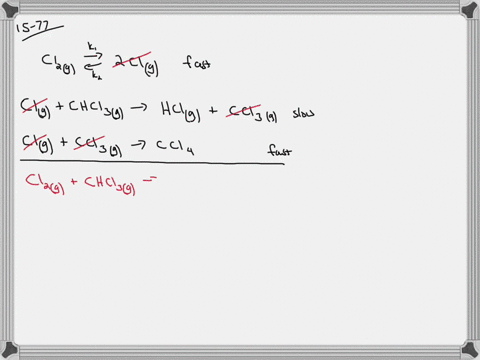 15-77
k₁
Cl₂(g) ⇌ 2Cl(g) fast
k₂
Cl(g) + CHCl₃(g) → HCl(g) + CCl₃(g) slow
Cl(g) + CCl₃(g) → CCl₄ fast
Cl₂(g) + CHCl₃(g) –